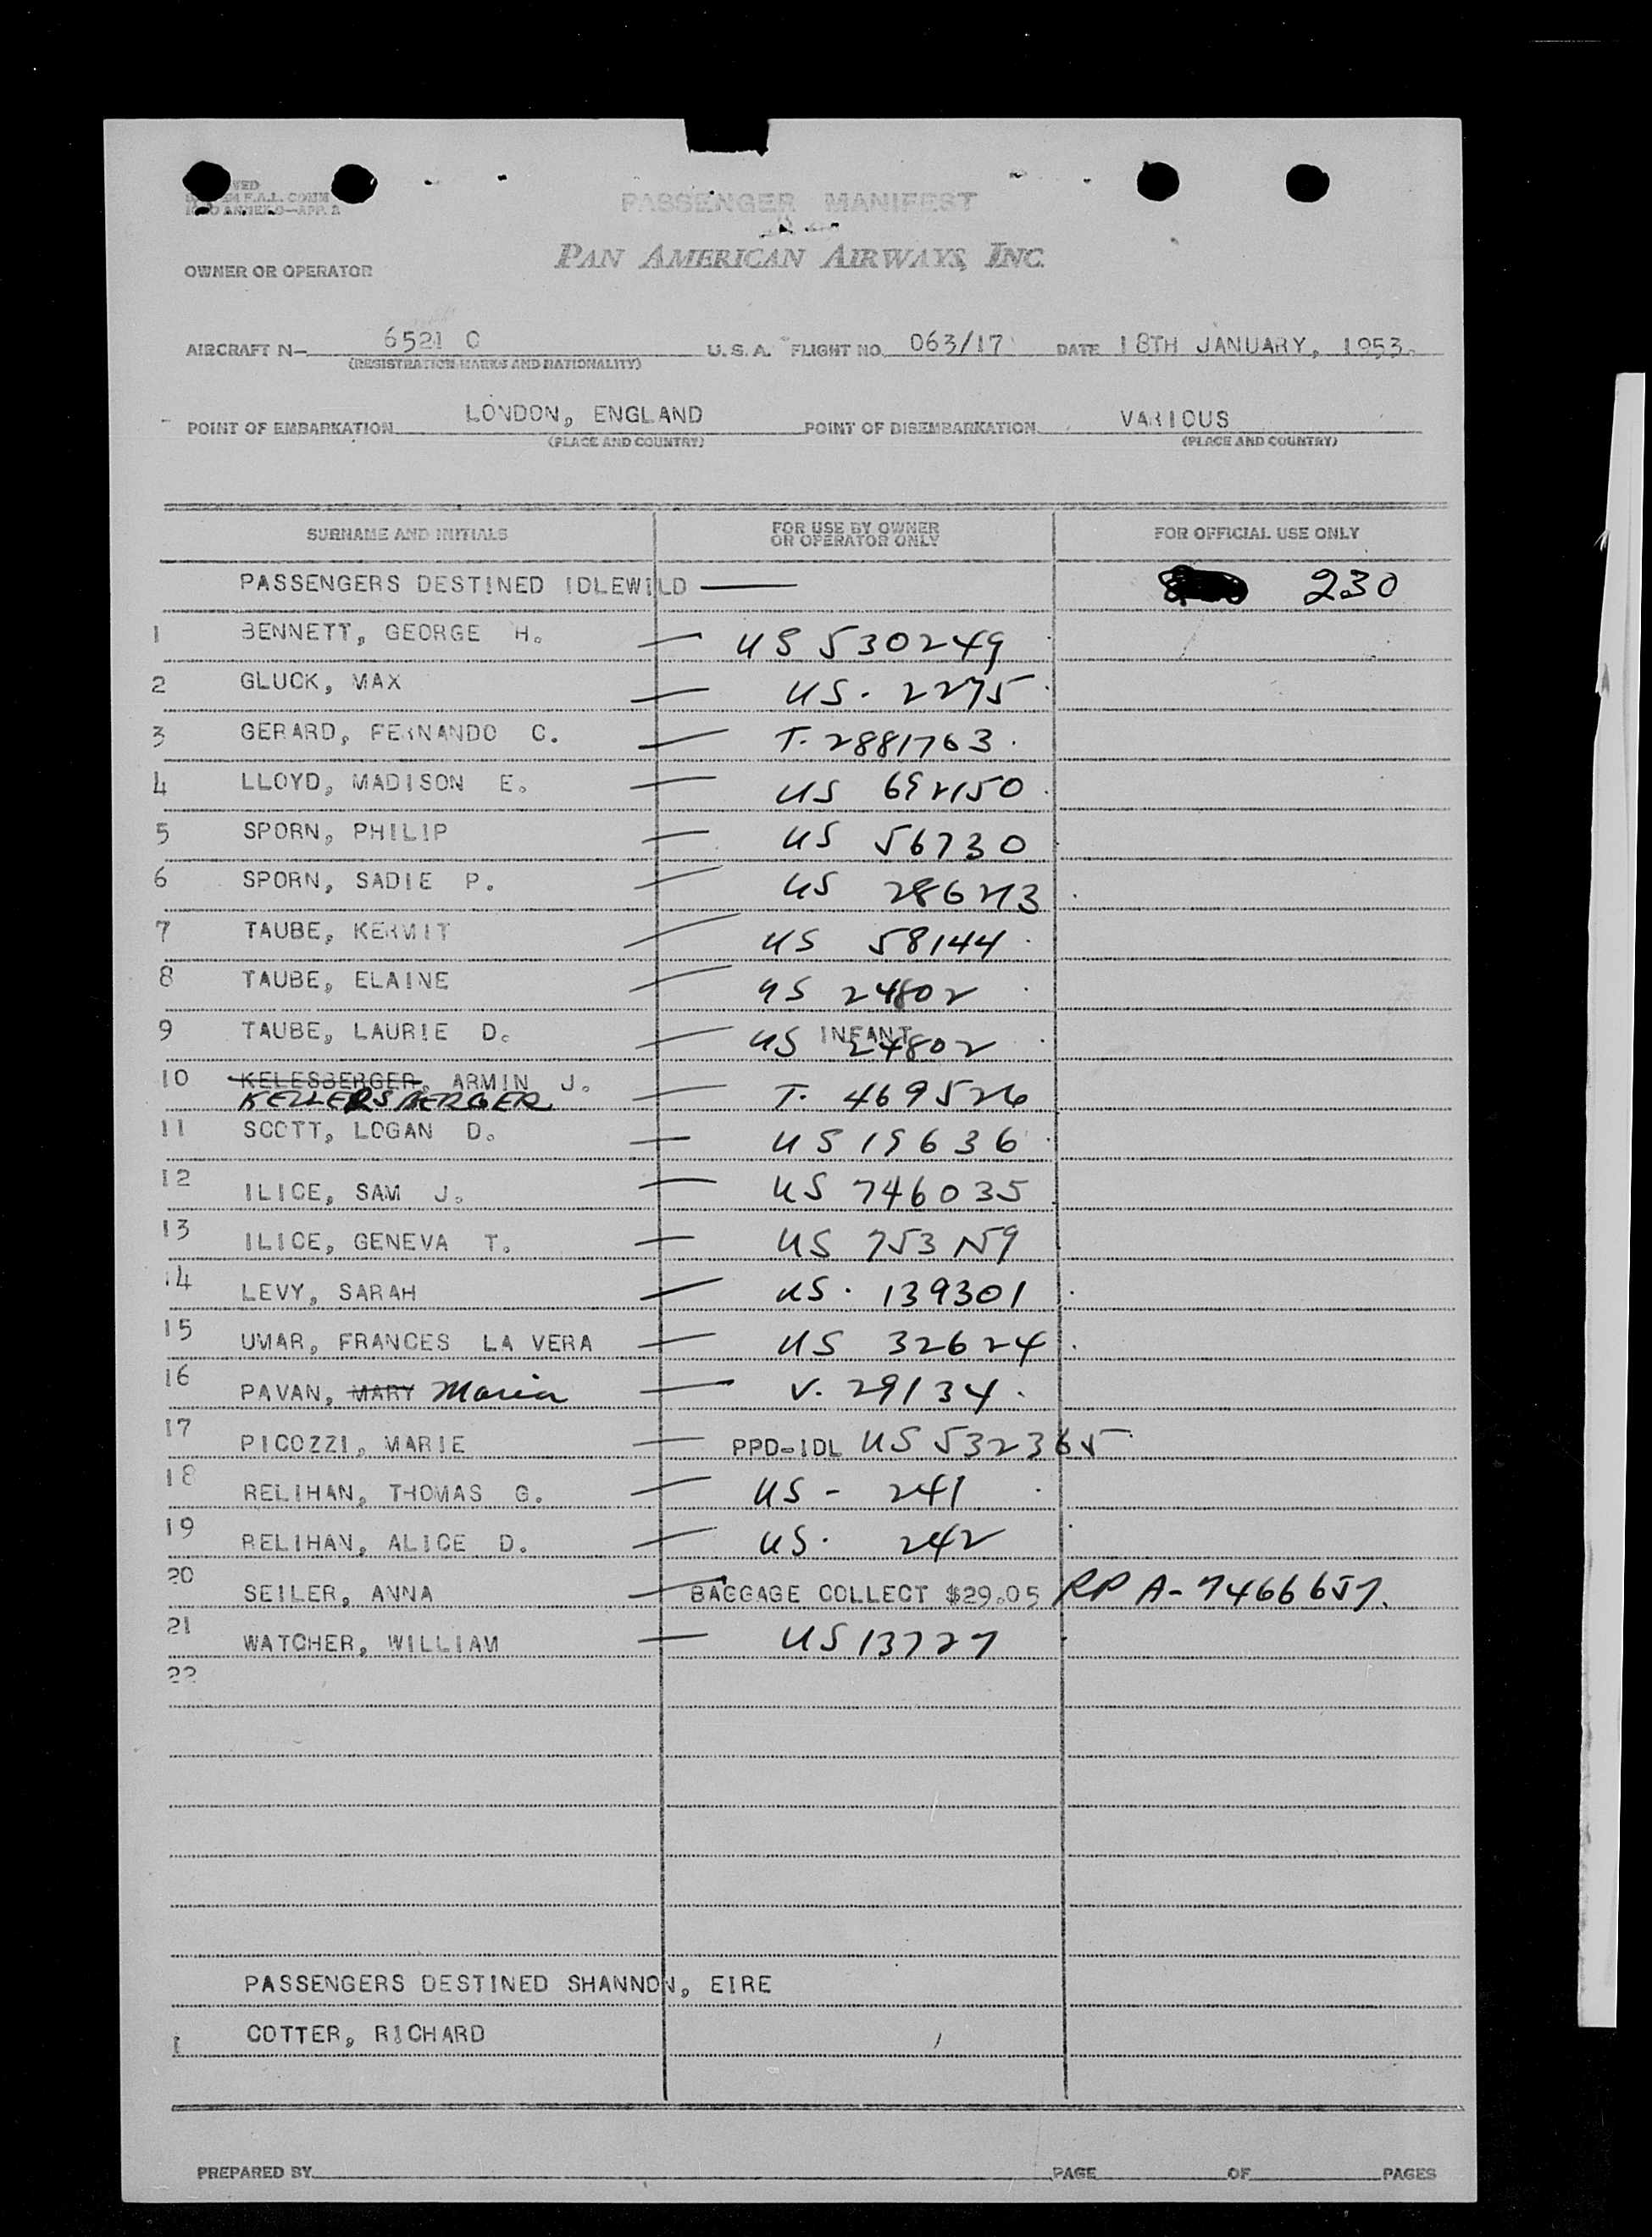 F.A.L. COMM
ANNEX 9—APP. A
PASSENGER MANIFEST
PAN AMERICAN AIRWAYS, INC.
OWNER OR OPERATOR
AIRCRAFT N— 6521 C U.S.A. FLIGHT NO. 063/17 DATE 18TH JANUARY, 1953.
(REGISTRATION MARKS AND NATIONALITY)
POINT OF EMBARKATION LONDON, ENGLAND POINT OF DISEMBARKATION VARIOUS
(PLACE AND COUNTRY) (PLACE AND COUNTRY)
SURNAME AND INITIALS FOR USE BY OWNER OR OPERATOR ONLY FOR OFFICIAL USE ONLY
PASSENGERS DESTINED IDLEWILD — 230
1 BENNETT, GEORGE H. — US 530249
2 GLUCK, MAX — US. 2275
3 GERARD, FERNANDO C. — T. 2881763.
4 LLOYD, MADISON E. — US 692150
5 SPORN, PHILIP — US 56730
6 SPORN, SADIE P. — US
7 TAUBE, KERMIT — US 58144
8 TAUBE, ELAINE — US 24802
9 TAUBE, LAURIE D. — US INFANT 24802
10 KELESBERGER, ARMIN J. — T. 469526
KELLERSBERGER
11 SCOTT, LOGAN D. — US 19636
12 ILICE, SAM J. — US 746035
13 ILICE, GENEVA T. — US
14 LEVY, SARAH — US. 139301
15 UMAR, FRANCES LA VERA — US 32624
16 PAVAN, MARY Maria — V. 29134.
17 PICOZZI, MARIE — PPD-IDL US 532365
18 RELIHAN, THOMAS G. — US - 241
19 RELIHAN, ALICE D. — US. 242
20 SEILER, ANNA — BAGGAGE COLLECT $29.05 RP A-7466657.
21 WATCHER, WILLIAM — US 13727
22
PASSENGERS DESTINED SHANNON, EIRE
1 COTTER, RICHARD
PREPARED BY PAGE OF PAGES